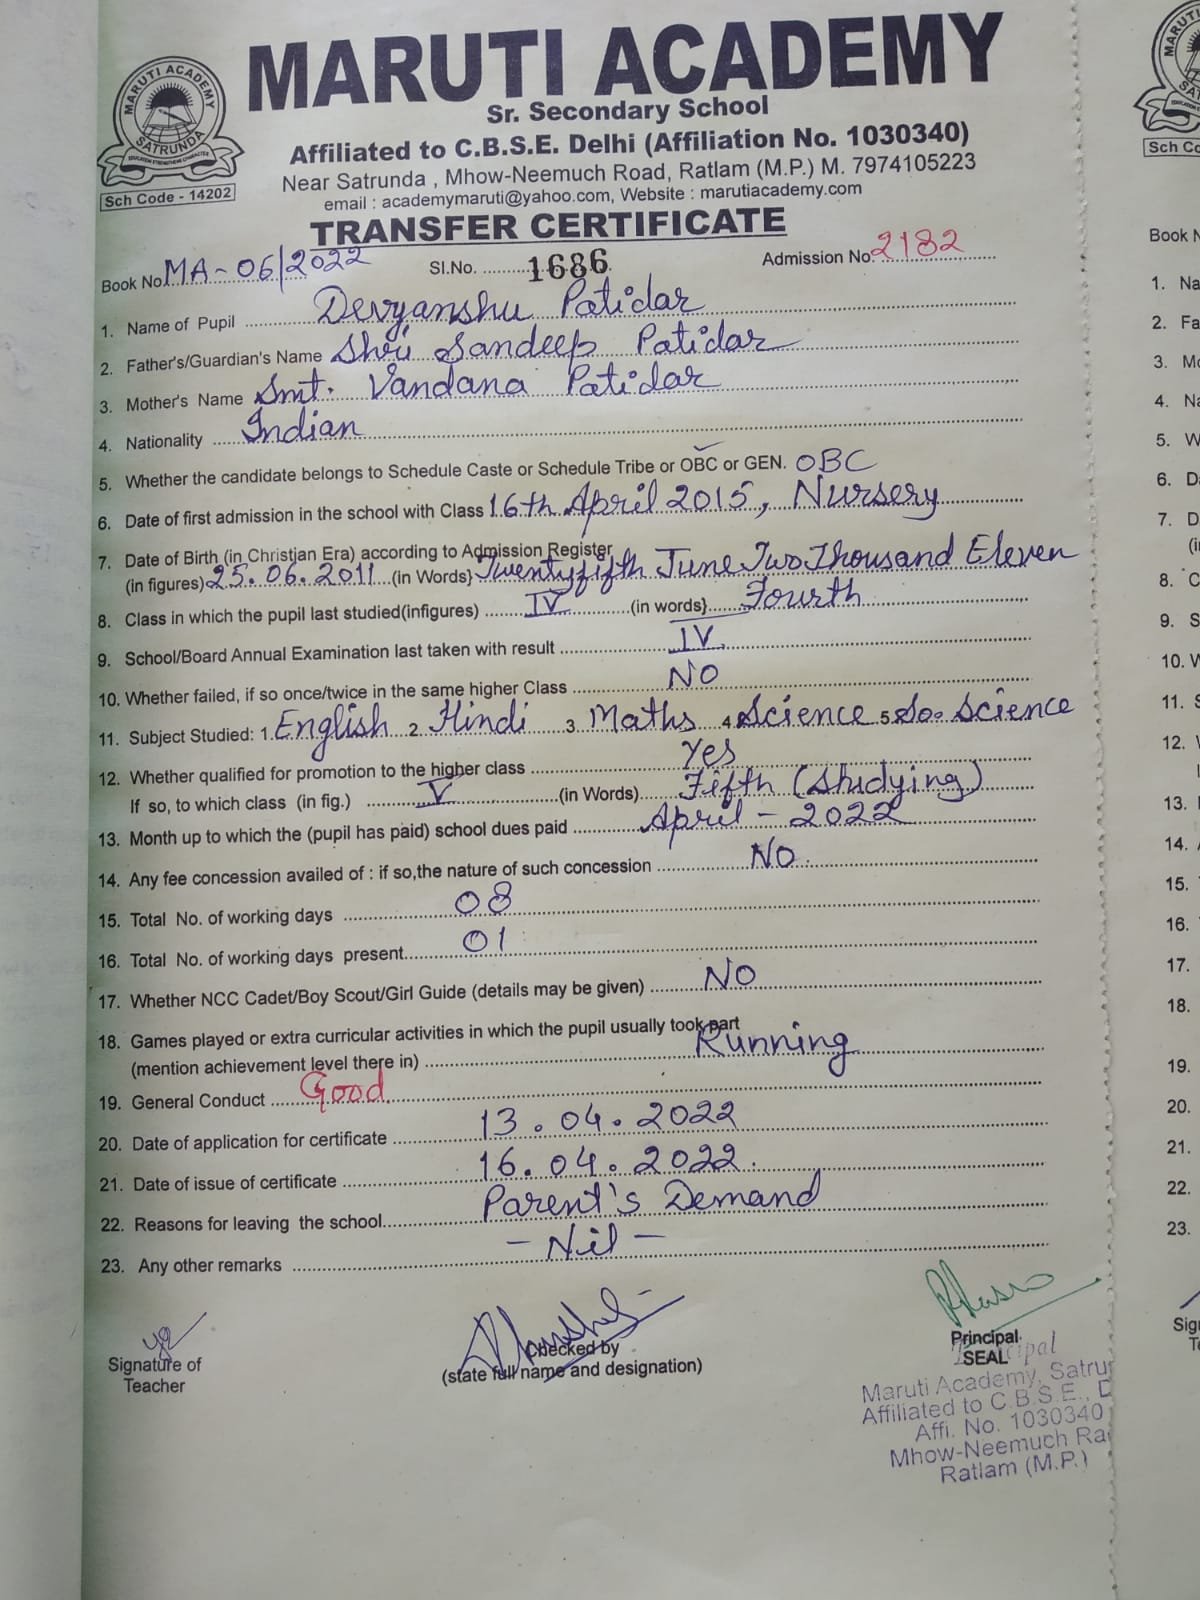 MARUTI ACADEMY
Sr. Secondary School
Affiliated to C.B.S.E. Delhi (Affiliation No. 1030340)
Near Satrunda , Mhow-Neemuch Road, Ratlam (M.P.) M. 7974105223
email : academymaruti@yahoo.com, Website : marutiacademy.com
MARUTI ACADEMY
SATRUNDA
Sch Code - 14202
TRANSFER CERTIFICATE
Book No. MA-06/2022 Sl.No. 1686 Admission No. 2182
1. Name of Pupil Devyanshu Patidar
2. Father's/Guardian's Name Shri Sandeep Patidar
3. Mother's Name Smt. Vandana Patidar
4. Nationality Indian
5. Whether the candidate belongs to Schedule Caste or Schedule Tribe or OBC or GEN. OBC
6. Date of first admission in the school with Class 16th April 2015, Nursery
7. Date of Birth (in Christjan Era) according to Admission Register
(in figures) 25.06.2011 (in Words} Twentyfifth June Two Thousand Eleven
8. Class in which the pupil last studied(infigures) IV (in words} Fourth
9. School/Board Annual Examination last taken with result IV
10. Whether failed, if so once/twice in the same higher Class NO
11. Subject Studied: 1. English 2. Hindi 3. Maths 4. Science 5. So. Science
12. Whether qualified for promotion to the higher class Yes
If so, to which class (in fig.) V (in Words) Fifth (Studying)
13. Month up to which the (pupil has paid) school dues paid April - 2022
14. Any fee concession availed of : if so,the nature of such concession NO
15. Total No. of working days 08
16. Total No. of working days present 01
17. Whether NCC Cadet/Boy Scout/Girl Guide (details may be given) NO
18. Games played or extra curricular activities in which the pupil usually took part
(mention achievement level there in) Running
19. General Conduct Good
20. Date of application for certificate 13.04.2022
21. Date of issue of certificate 16.04.2022
22. Reasons for leaving the school Parent's Demand
23. Any other remarks - Nil -
Signature of
Teacher
Checked by
(state full name and designation)
Principal
SEAL
Principal
Maruti Academy, Satru
Affiliated to C.B.S.E., D
Affi. No. 1030340
Mhow-Neemuch Ra
Ratlam (M.P.)
Sch Co
Book N
1. Na
2. Fa
3. Mo
4. Na
5. W
6. Da
7. D
(i
8. C
9. S
10. W
11. S
12. W
13.
14.
15.
16.
17.
18.
19.
20.
21.
22.
23.
Sig
Te